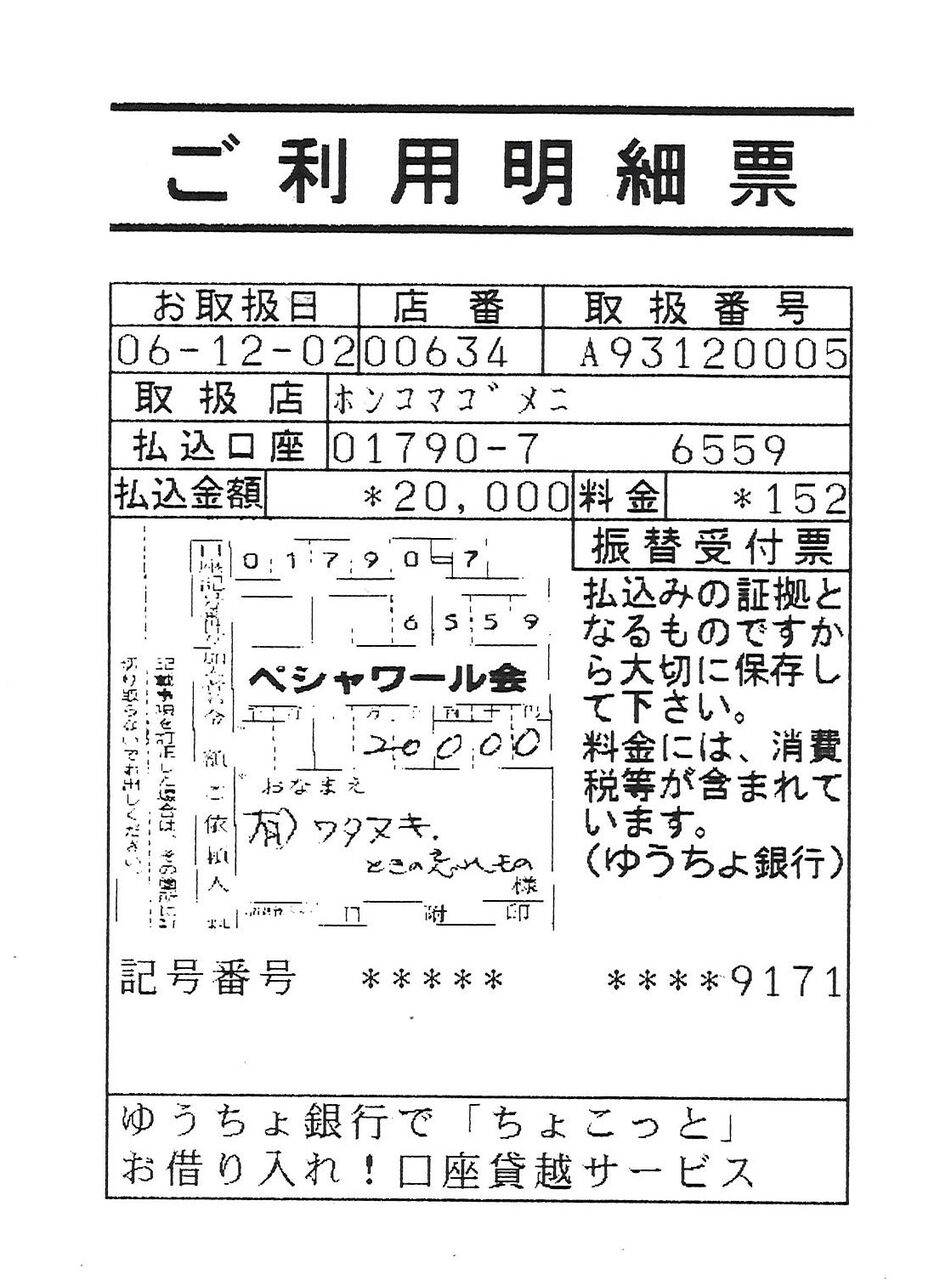 ご利用明細票
お取扱日 店番 取扱番号
06-12-02 00634 A93120005
取扱店 ホンコマゴメニ
払込口座 01790-7 6559
払込金額 *20,000 料金 *152
振替受付票
払込みの証拠と
なるものですか
ら大切に保存し
て下さい。
料金には、消費
税等が含まれて
います。
(ゆうちょ銀行)
01790=7
6559
ペシャワール会
20000
おなまえ
有)ワタヌキ.
ときの忘れもの
様
ご依頼人
記載事項を訂正した場合は、その箇所に
切り取らないでお出しください。
附 印
記号番号 ***** ****9171
ゆうちょ銀行で「ちょこっと」
お借り入れ！口座貸越サービス